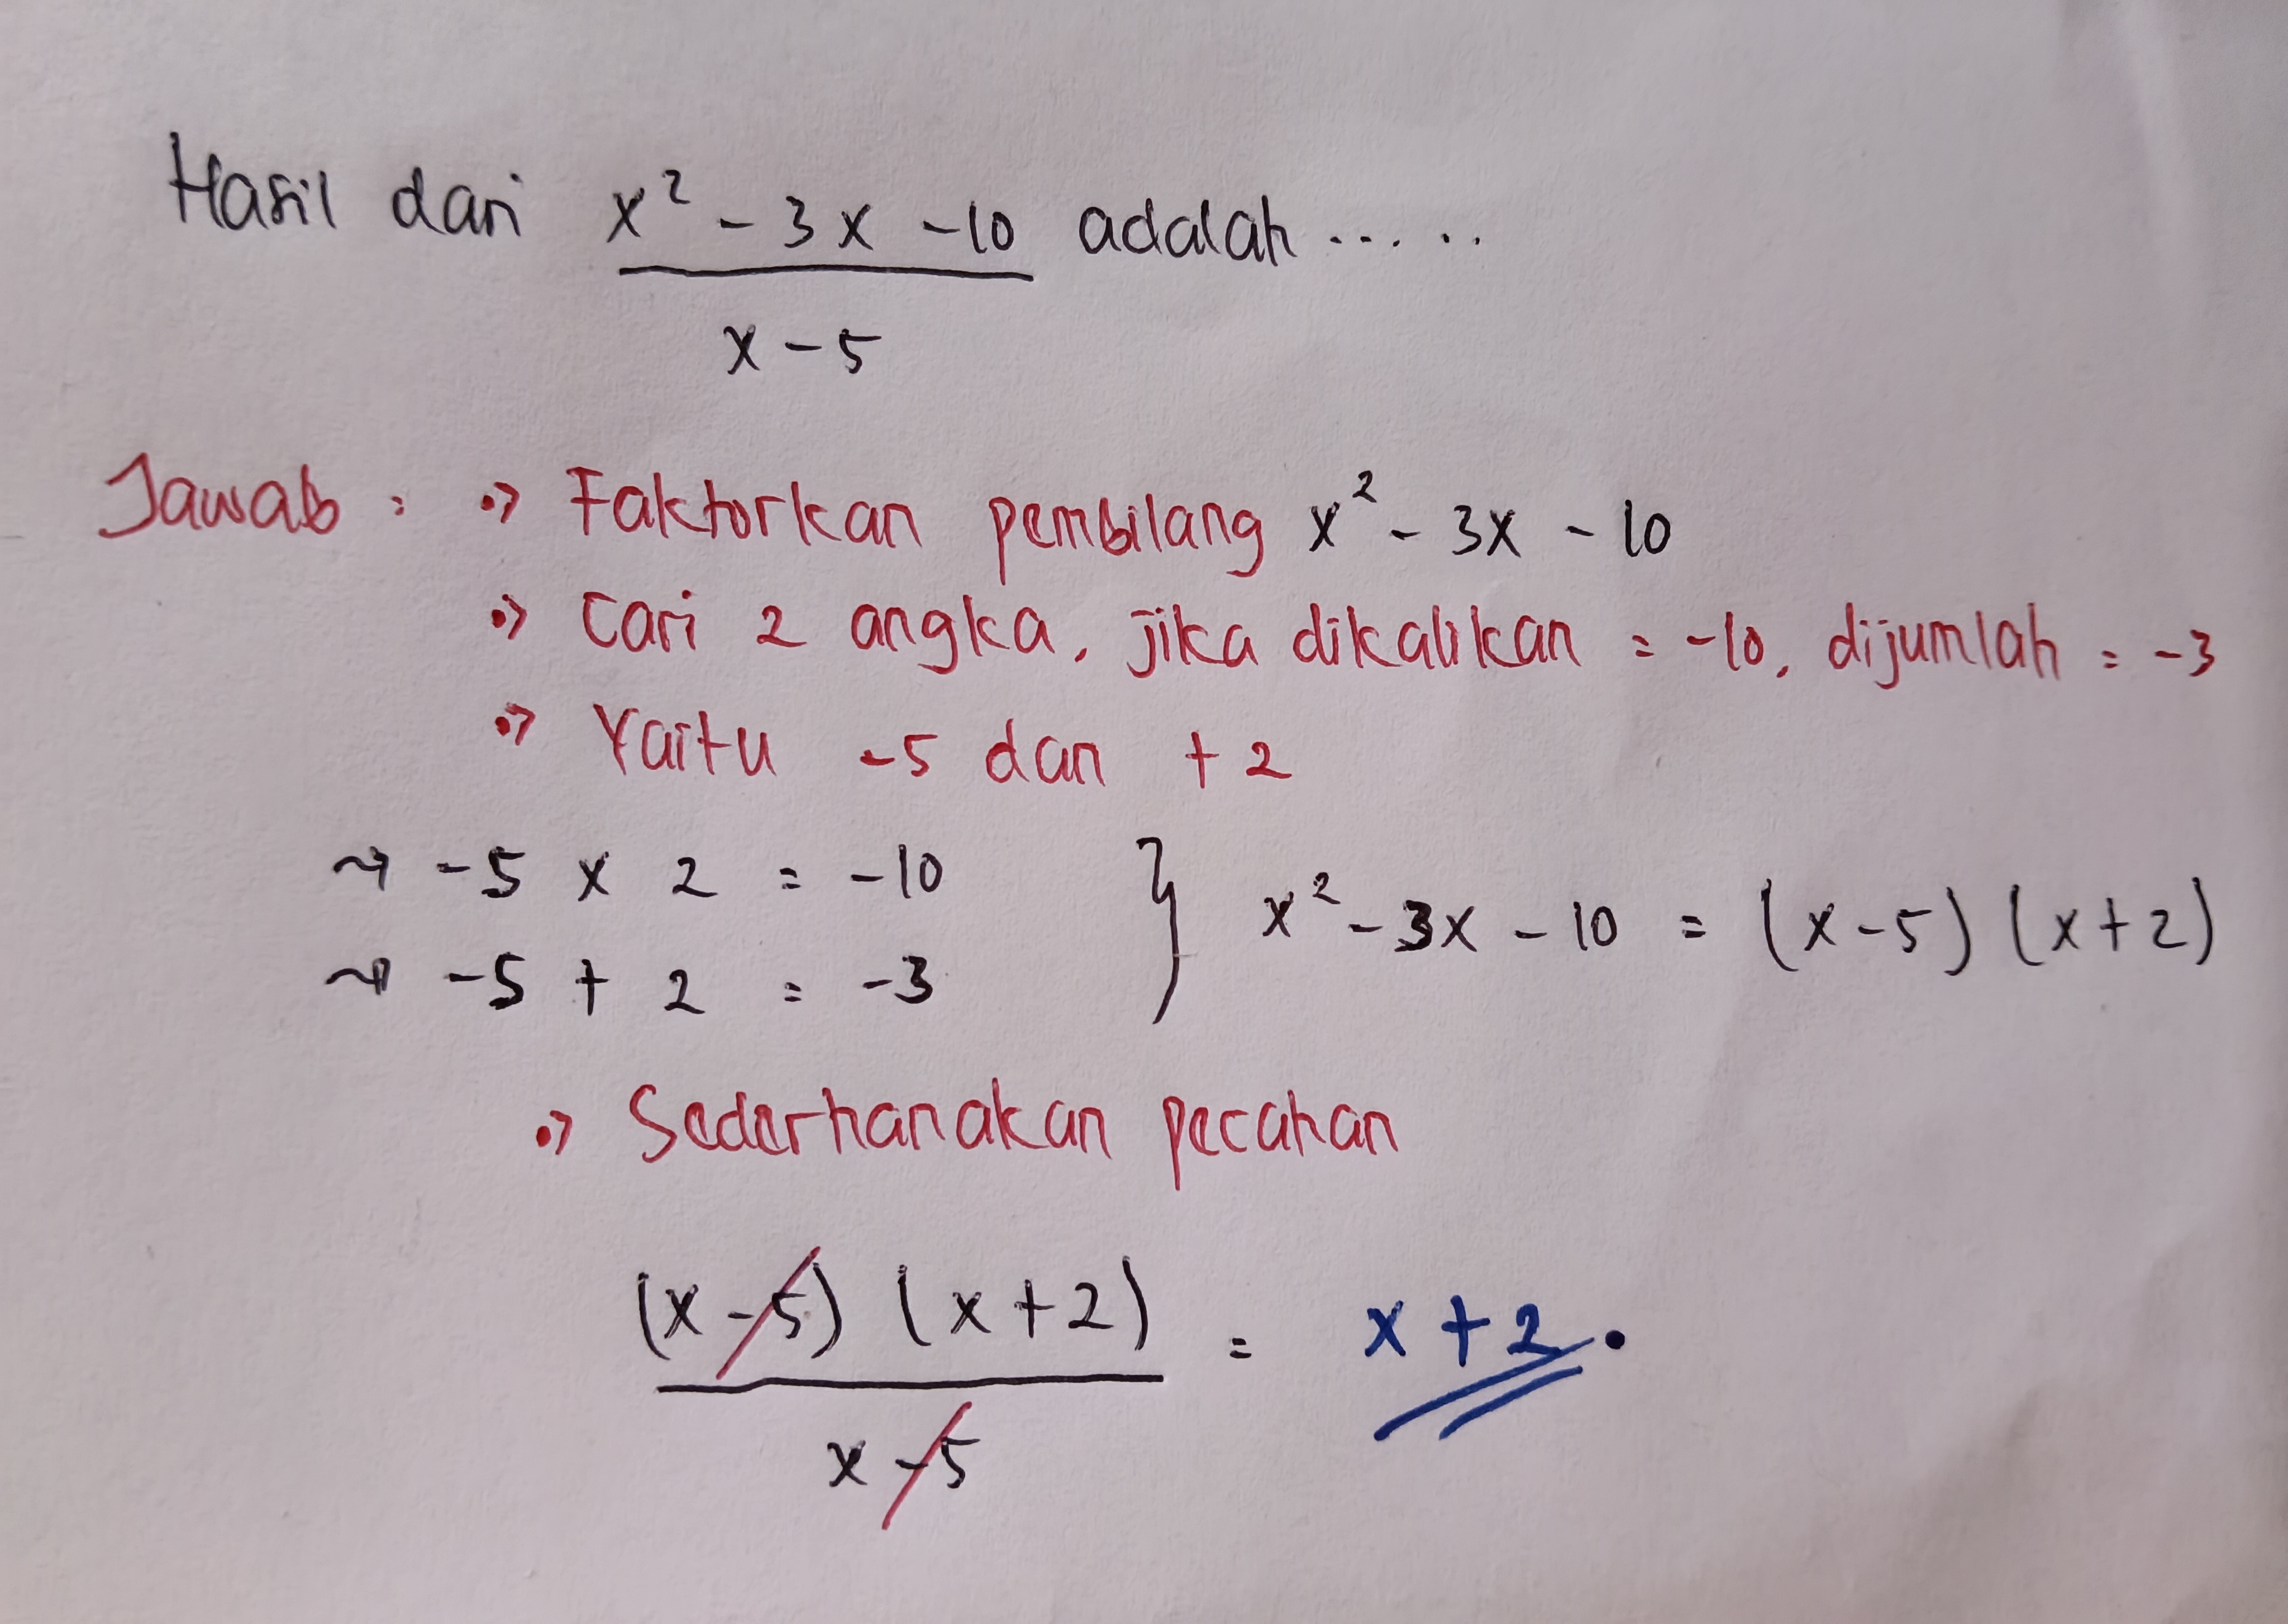 Hasil dari x² - 3x - 10 adalah ......
x - 5
Jawab : •> Faktorkan pembilang x² - 3x - 10
•> Cari 2 angka, jika dikalikan = -10, dijumlah = -3
•> Yaitu -5 dan +2
~> -5 x 2 = -10
~> -5 + 2 = -3
} x² - 3x - 10 = (x-5) (x+2)
•> Sederhanakan pecahan
(x-5) (x+2) = x + 2.
x - 5